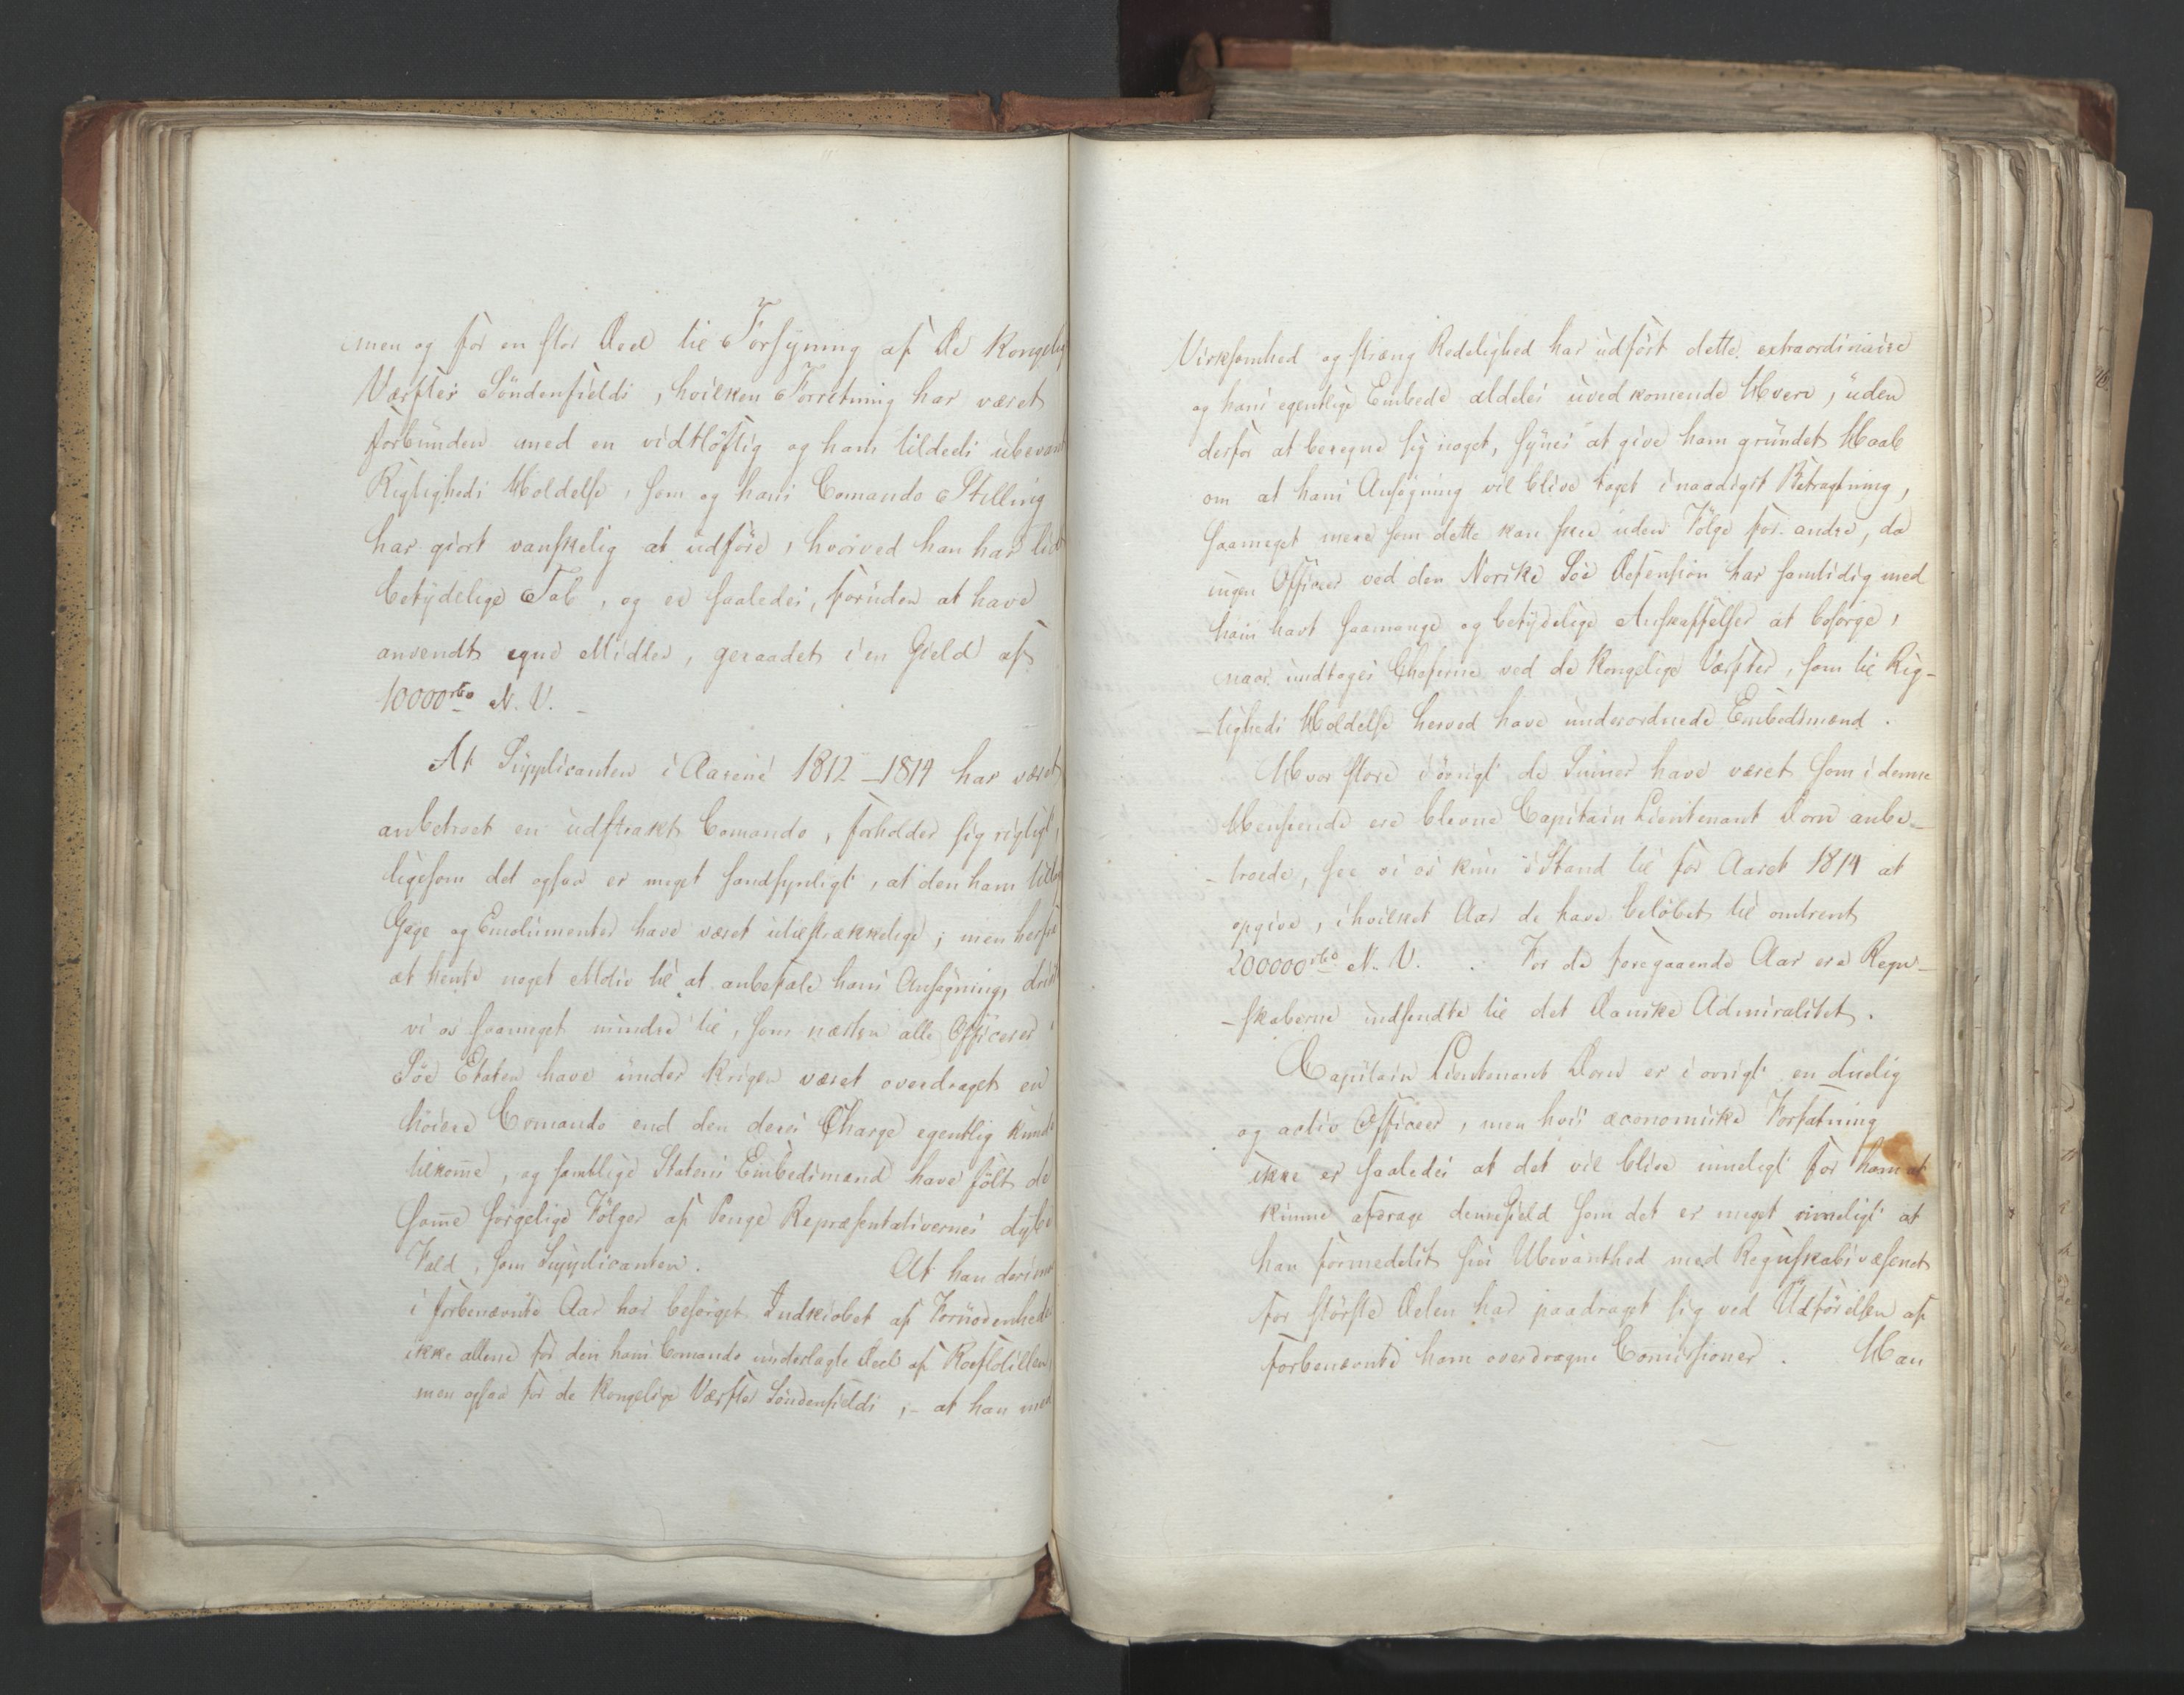 men og for en stor Deel til Forsyning af De Kongelig
Værfter Söndenfields, hvilken Forretning har været
forbunden med en vidtlöftig og ham tildeels ubevant
Rigtigheds Holdelse, som og hans Comando Stilling
har giort vanskelig at udföre, hvorved han har lidt
betydelige Tab, og er saaledes, foruden at have
anvendt egne Midler, geraadet i en Gield af
10000 rbd N. V. _
At Supplicanten i Aarene 1812_1814 har været
anbetroet en udstrakt Comando, forholder sig rigtigt,
ligesom det ogsaa er meget sandsynligt, at den ham
Gage og Emolumenter have været utilstrækkelige; men herfra
at hente noget Motiv til at anbefale hans Ansögning,
vi os saameget mindre til, som næsten alle Officerer i
Söe Etaten have under Krigen været overdraget en
höiere Comando end den deres Charge egentlig kunde
tilkome, og samtlige Statens Embedsmænd have fölt de
same sörgelige Fölger af Penge Repræsentativernes dybe
Fald, som Supplicanten. At han derimod
i forbenævnte Aar har besörget Indkiöbet af Fornödenheder
ikke allene for den hans Comando underlagte Deel af Roeflotillen,
men ogsaa for de Kongelige Værfter Söndenfields, - at han med
Virksomhed og stræng Redelighed har udfört dette extraordinaire
og hans egentlige Embede aldeles uvedkomende Hverv, uden
derfor at beregne sig noget, synes at give ham grundet Haab
om at hans Ansögning vil blive taget i naadigst Betragtning,
saameget mere som dette kan skee uden Fölge for andre, da
ingen Officeer ved den Norske Söe Defension har samtidig med
ham havt saamange og betydelige Anskaffelser at besörge,
naar undtages Cheferne ved de Kongelige Værfter, som til Rig-
-tigheds Holdelse herved have underordnede Embedsmænd.
Hvor store iövrigt de Sumer have været som i denne
Henseende ere blevne Capitain Lieutenant Dorn anbe-
-troede, see vi os kun i Stand til for Aaret 1814 at
opgive, i hvilket Aar de have belöbet til omtrent
200000 rbd N. V. . For de foregaaende Aar ere Regn-
-skaberne indsendte til det Danske Admiralitet.
Capitain Lieutenant Dorn er i övrigt en duelig
og activ Officeer, men hvis œconomiske Forfatning
ikke er saaledes at det vil blive mueligt for ham at
kunne afdrage denne Gield som det er meget rimeligt at
han formedelst sin Ubevanthed med Regnskabsvæsenet
for störste Delen har paadraget sig ved Udförelsen af
forbenævnte ham overdragne Comissioner. Han